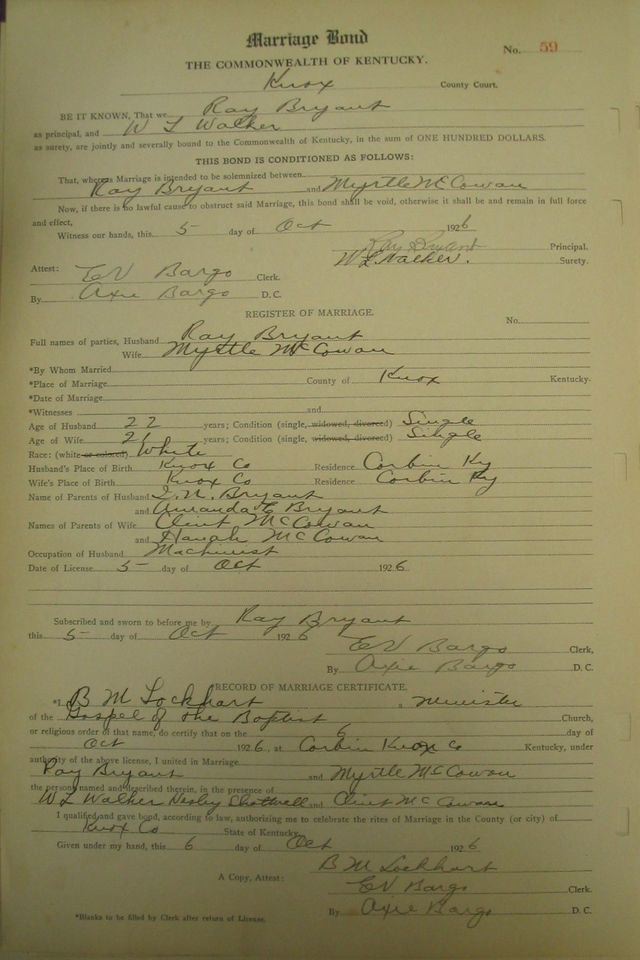 Marriage Bond
No. 59
THE COMMONWEALTH OF KENTUCKY.
Knox County Court.
BE IT KNOWN, That we Ray Bryant
as principal, and W L Walker
as surety, are jointly and severally bound to the Commonwealth of Kentucky, in the sum of ONE HUNDRED DOLLARS.
THIS BOND IS CONDITIONED AS FOLLOWS:
That, whereas Marriage is intended to be solemnized between
Ray Bryant and Myrtle McCowan
Now, if there is no lawful cause to obstruct said Marriage, this bond shall be void, otherwise it shall be and remain in full force
and effect,
Witness our hands, this 5 day of Oct 1926
Ray Bryant Principal.
W L Walker. Surety.
Attest: EV Bargo Clerk.
By Axie Bargo D. C.
REGISTER OF MARRIAGE.
No.
Full names of parties, Husband Ray Bryant
Wife Myrtle McCowan
*By Whom Married
*Place of Marriage County of Knox Kentucky.
*Date of Marriage
*Witnesses and
Age of Husband 22 years; Condition (single, widowed, divorced) Single
Age of Wife 21 years; Condition (single, widowed, divorced) Single
Race: (white or colored) White
Husband's Place of Birth Knox Co Residence Corbin Ky
Wife's Place of Birth Knox Co Residence Corbin Ky
Name of Parents of Husband Bryant
and Amanda E Bryant
Names of Parents of Wife Clint McCowan
and Hanah McCowan
Occupation of Husband Machinest
Date of License 5 day of Oct 1926
Subscribed and sworn to before me by Ray Bryant
this 5 day of Oct 1926
EV Bargo Clerk,
By Axie Bargo D. C.
RECORD OF MARRIAGE CERTIFICATE.
*I, B M Lockhart, a Minister
of the Gospel of the Baptist Church,
or religious order of that name, do certify that on the 6 day of
Oct 1926, at Corbin Knox Co Kentucky, under
authority of the above license, I united in Marriage
Ray Bryant and Myrtle McCowan
the persons named and described therein, in the presence of
W L Walker Chotwell and Clint McCowan
I qualified and gave bond, according to law, authorizing me to celebrate the rites of Marriage in the County (or city) of
Knox Co State of Kentucky
Given under my hand, this 6 day of Oct 1926
B M Lockhart
A Copy, Attest: EV Bargo Clerk.
By Axie Bargo D. C.
*Blanks to be filled by Clerk after return of License.